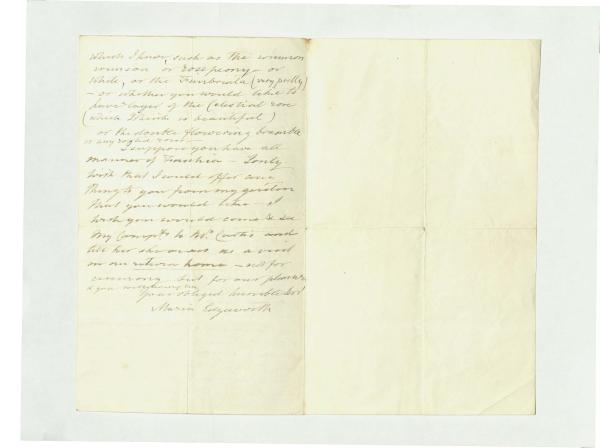 which I know, such as the common
crimson or rose peony – or
white, or the (very pretty)
– or whether you would like to
have a layer of the Celestial rose
(which I think is beautiful)
or the double flowering bramble
or any
I suppose you have all
manner of Fuschia – I only
wish that I could offer any
thing to you from my garden
that you would like – I
wish you would come & see
My Compts to Mrs. Curtis and
tell her she owes us a visit
on our return home – not for
ceremony but for our pleasure
& your
Your obliged humble Servt
Maria Edgeworth